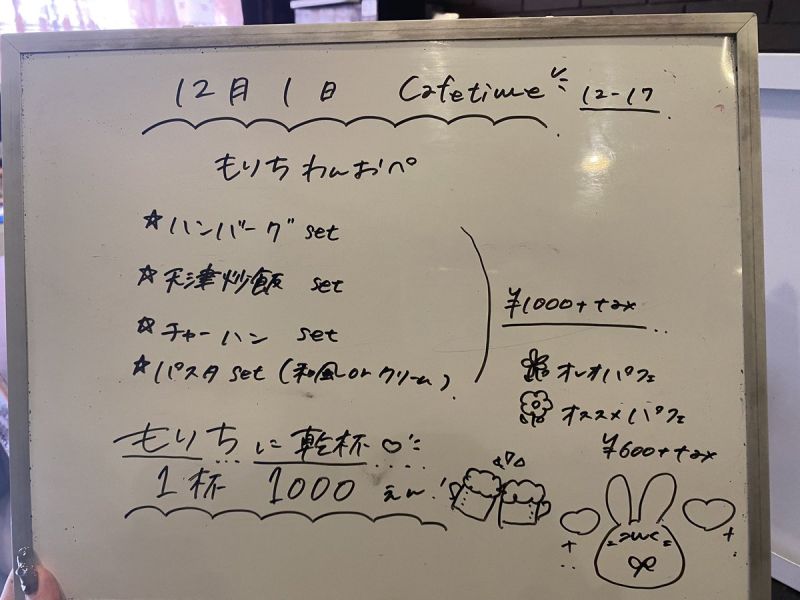 12月1日 Cafetime 12-17
もりちわんおぺ
☆ハンバーグ set
☆天津炒飯 set
☆チャーハン set
☆パスタ set (和風 or クリーム)
¥1000+tax
オレオパフェ
オススメパフェ
¥600+tax
もりちに乾杯♡
1杯 1000えん!